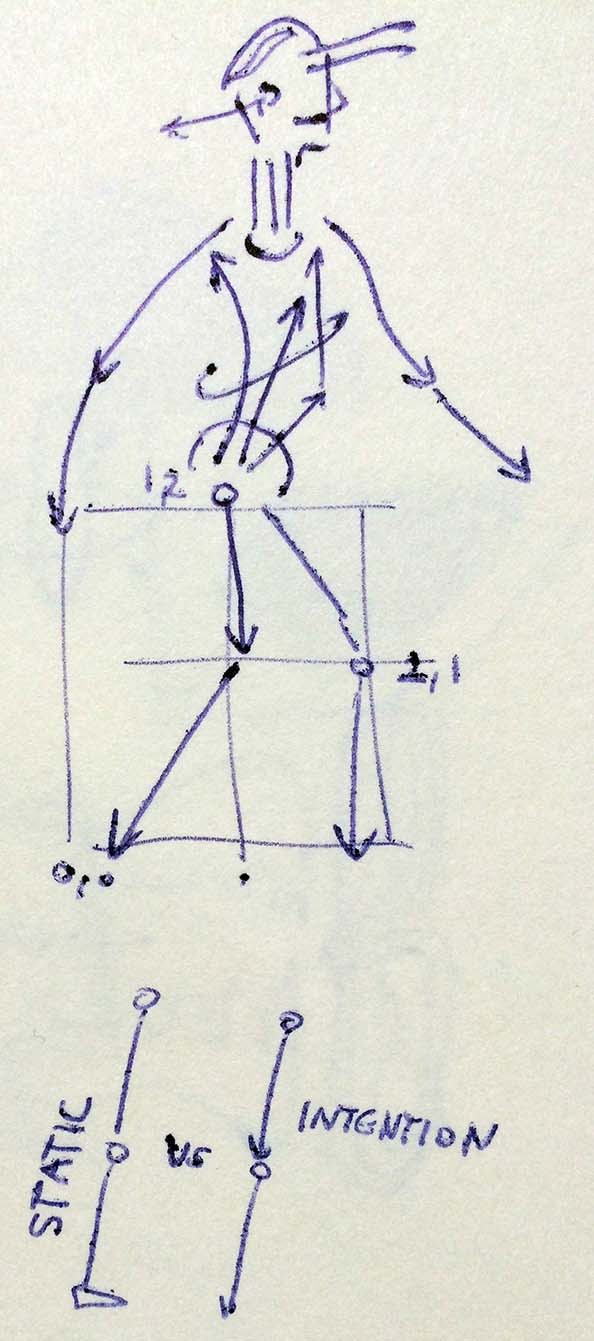 12
1,1
0,0
STATIC
vs
INTENTION